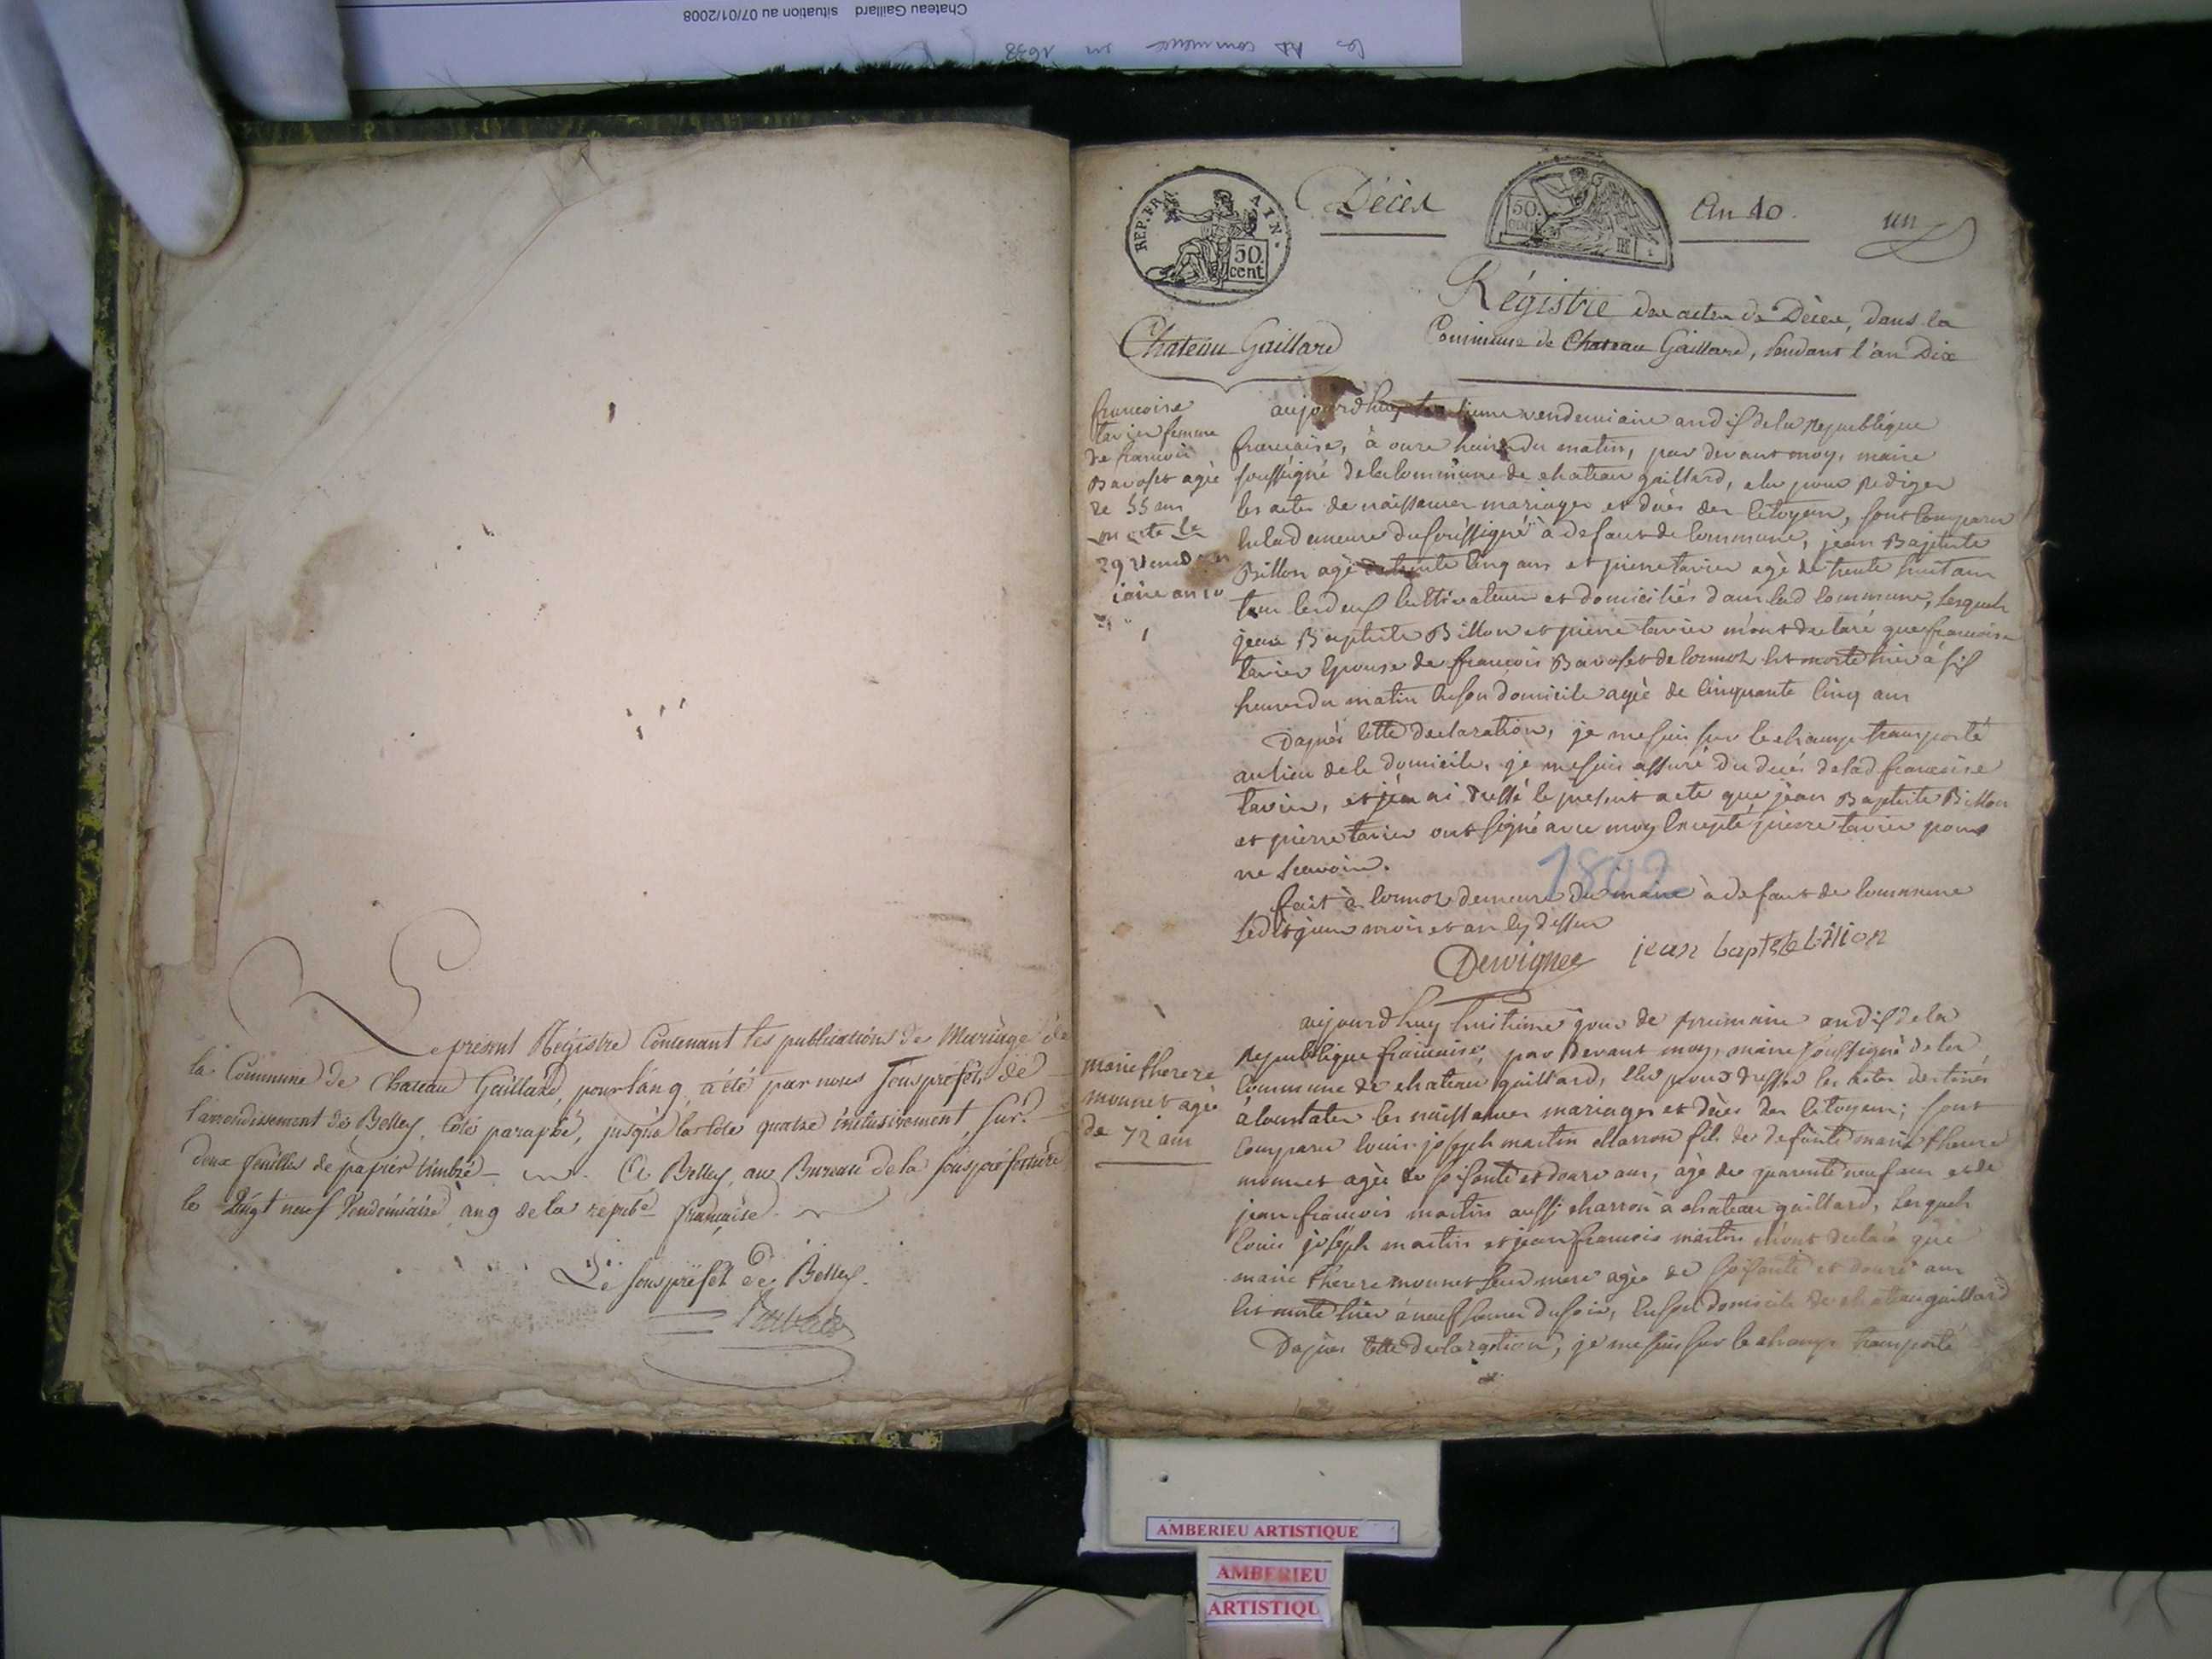 Chateau Gaillard situation au 07/01/2008
les AD commence en 1638
Le présent Régistre Contenant les publications de Mariage de
la Commune de Chateau Gaillard, pour l'an 9, a été par nous Sous préfet de
l'arrondissement de Belley, coté paraphé, jusqu'à la cote quatre inclusivement, sur
deux feuilles de papier timbré. A Belley, au Bureau de la sous préfecture
le Vingt neuf Vendémiaire an 9 de la répub.e française
Le sous préfet de Belley.
REP. FRA
50.
cent
Décès
50.
An 10.
un
Régistre des actes de Décès, dans la
Chateau Gaillard
Commune de Chateau Gaillard, pendant l'an Dix
francoise
tavier femme
de francois
Bavoset agée
de 55 ans
morte le
29 vendem
iaire an 10
1
aujourdhuy vendemiaire an dix de la republique
francaise, à onze heures du matin, par devant moy, maire
soussigné de la commune de chateau gaillard, elu pour rediger
les actes de naissances mariages et décès des citoyens, sont comparus
en la demeure du soussigné à defaut de commune, jean Baptiste
Billon agé de trente cinq ans et pierre tavier agé de trente huit ans
tous les deux cultivateurs et domiciliés dans lad commune, lesquels
jean Baptiste Billon et pierre tavier m'ont declaré que francoise
tavier epouse de francois Bavoset de cormoz est morte hier à six
heures du matin en son domicile agée de cinquante cinq ans
Dapres cette declaration, je me suis sur le champ transporté
au lieu de ce domicile, je me suis assuré du décés de lad francoise
tavier, et j'en ai dressé le present acte que jean Baptiste Billon
et pierre tavier ont signé avec moy excepté pierre tavier pour
ne scavoir.
1802
fait à cormoz demeure du maire à defaut de commune
Ledit jour mois et an cy dessus
jean baptste billion
marie therese
monnet agée
de 72 ans
aujourdhuy huitieme jour de frimaire an dix de la
Republique francaise, par devant moy, maire soussigné de la
commune de chateau gaillard, elu pour dresser les actes destinés
à constater les naissances mariages et décès des citoyens; sont
comparu louis joseph martin charron fils de defunte marie therese
monnet agée de soixante et douze ans, agé de quarente neuf ans et de
jean francois martin aussi charron à chateau gaillard, lesquels
louis joseph martin et jean francois martin m'ont declaré que
marie therese monnet leur mere agée de soixante et douze ans
est morte hier à neuf heures du soir, en son domicile de chateau gaillard
Dapres cette declaration, je me suis sur le champ transporté
AMBERIEU ARTISTIQUE
AMBERIEU
ARTISTIQU